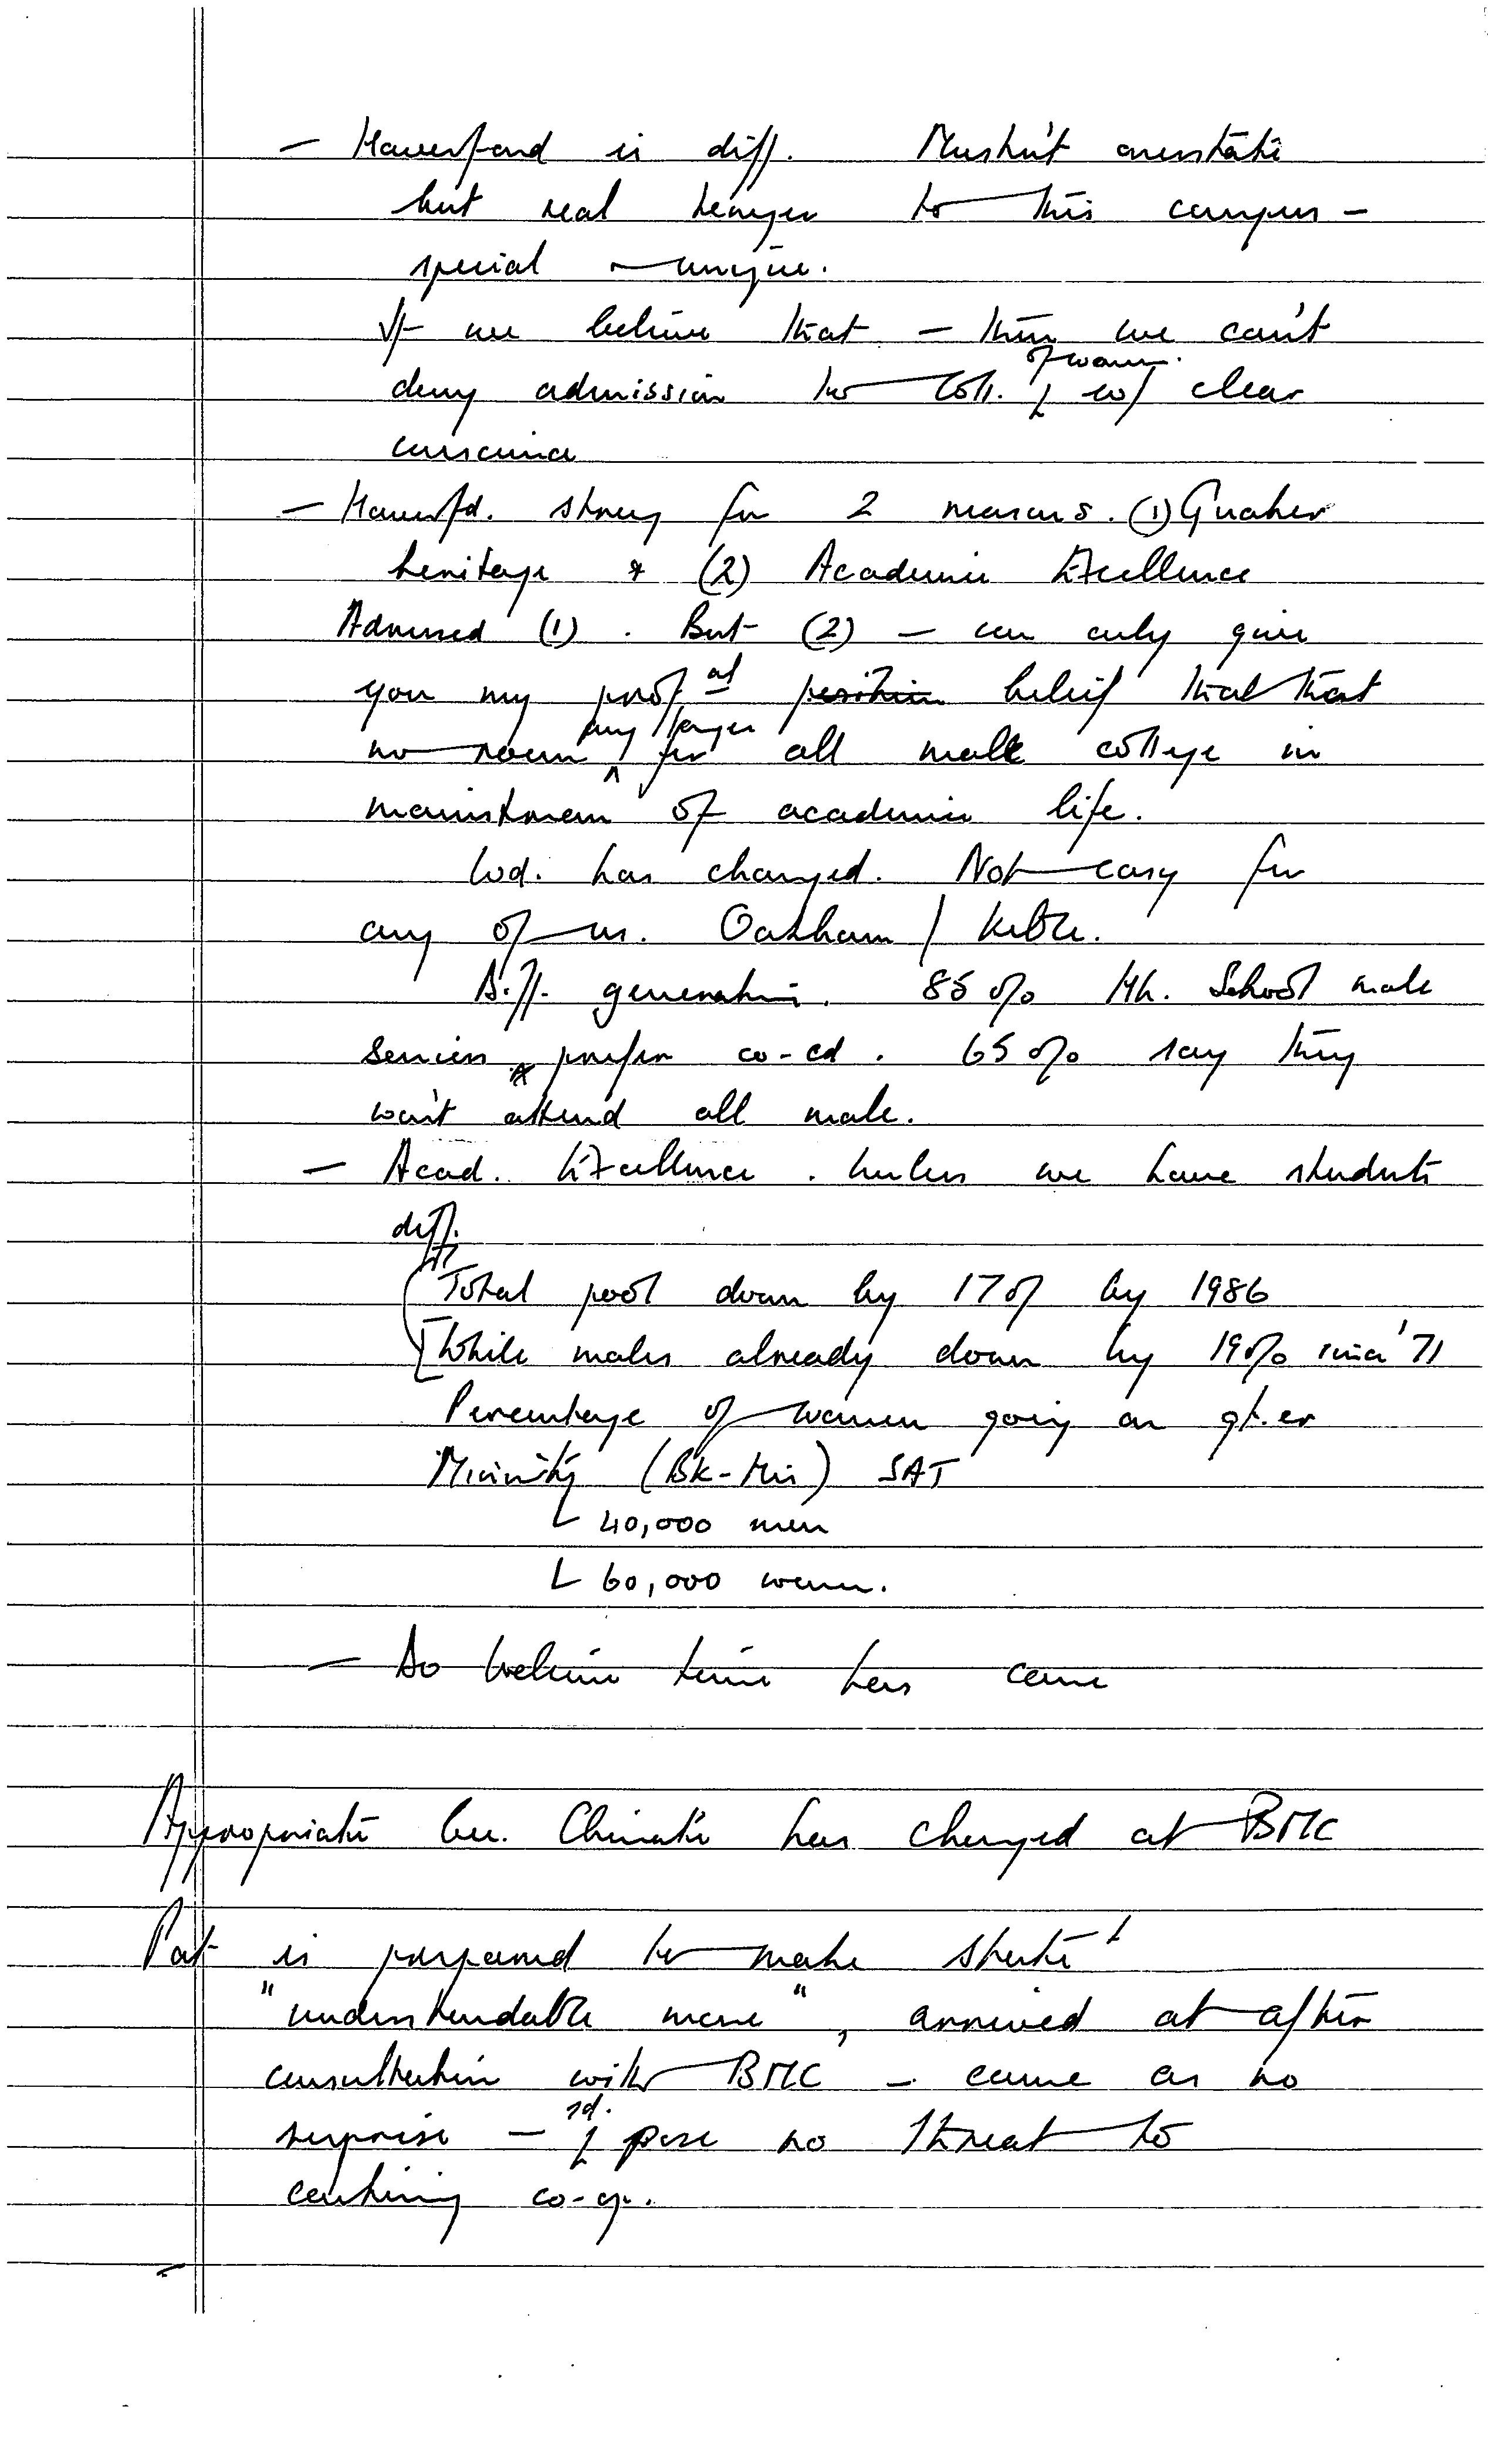 — Haverford is diff. Mustn't overstate
but real to this campus —
special ~ unique.
If we believe that — then we can't
of women.
deny admission to Coll. w/ clear
conscience
— Haverfd. strong for 2 reasons. (1) Quaker
heritage & (2) Academic Excellence
(1). But (2) — can only give
you my prof.al position belief that that
any longer
no room ^ for all male college in
mainstream of academic life.
Wd. has changed. Not easy for
any of us. Oakham / Keble.
Diff. generation. 85% Hh. School male
seniors prefer co-ed. 65% say they
won't attend all male.
— Acad. Excellence. Unless we have students
diff.
Total pool down by 17% by 1986
While males already down by 19% since '71
Percentage of women going on gt.er
Minority (Bk-His) SAT
40,000 men
60,000 women.
— So believe time has come
Appropriate bec. Climate has changed at BMC
Pat is prepared to make state't
"understandable move", arrived at after
consultation with BMC — came as no
sd.
surprise — & pose no threat to
conting co-op.